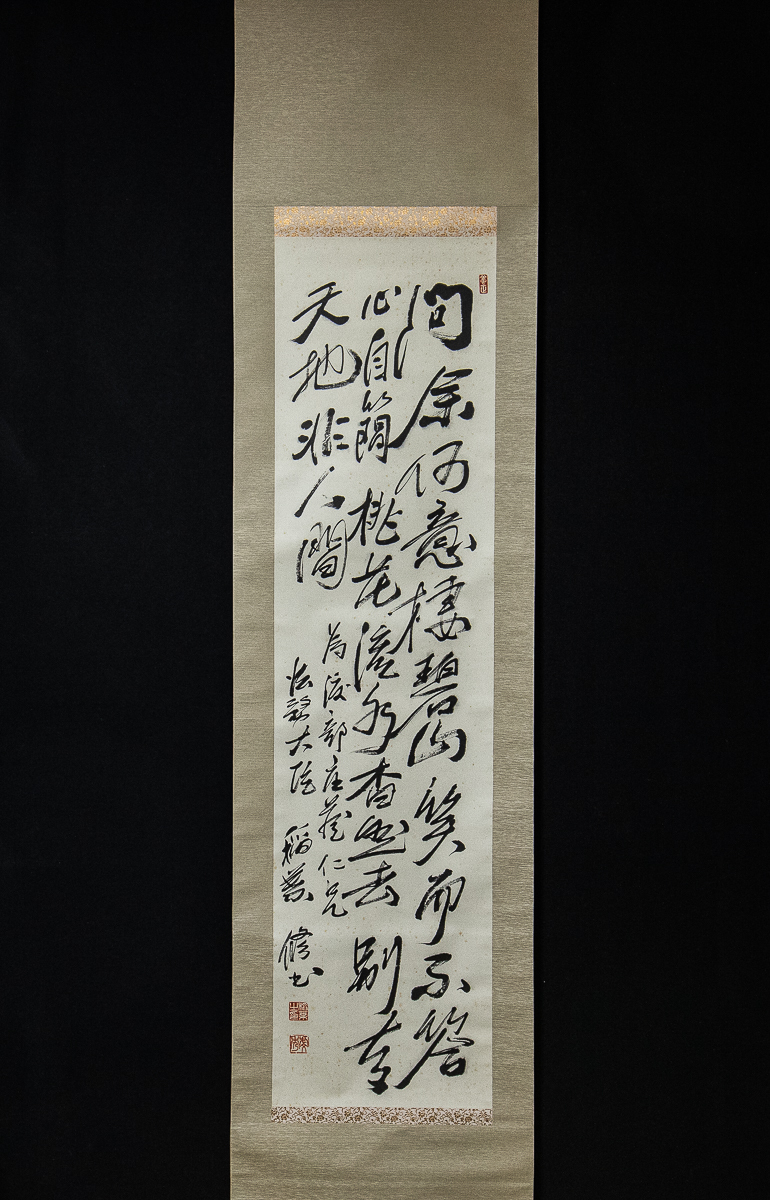 問余何意棲碧山笑而不答
心自簡桃花流水杳然去別有
天地非人間
為渡部庄蔵仁兄
法務大臣 稲葉 修書